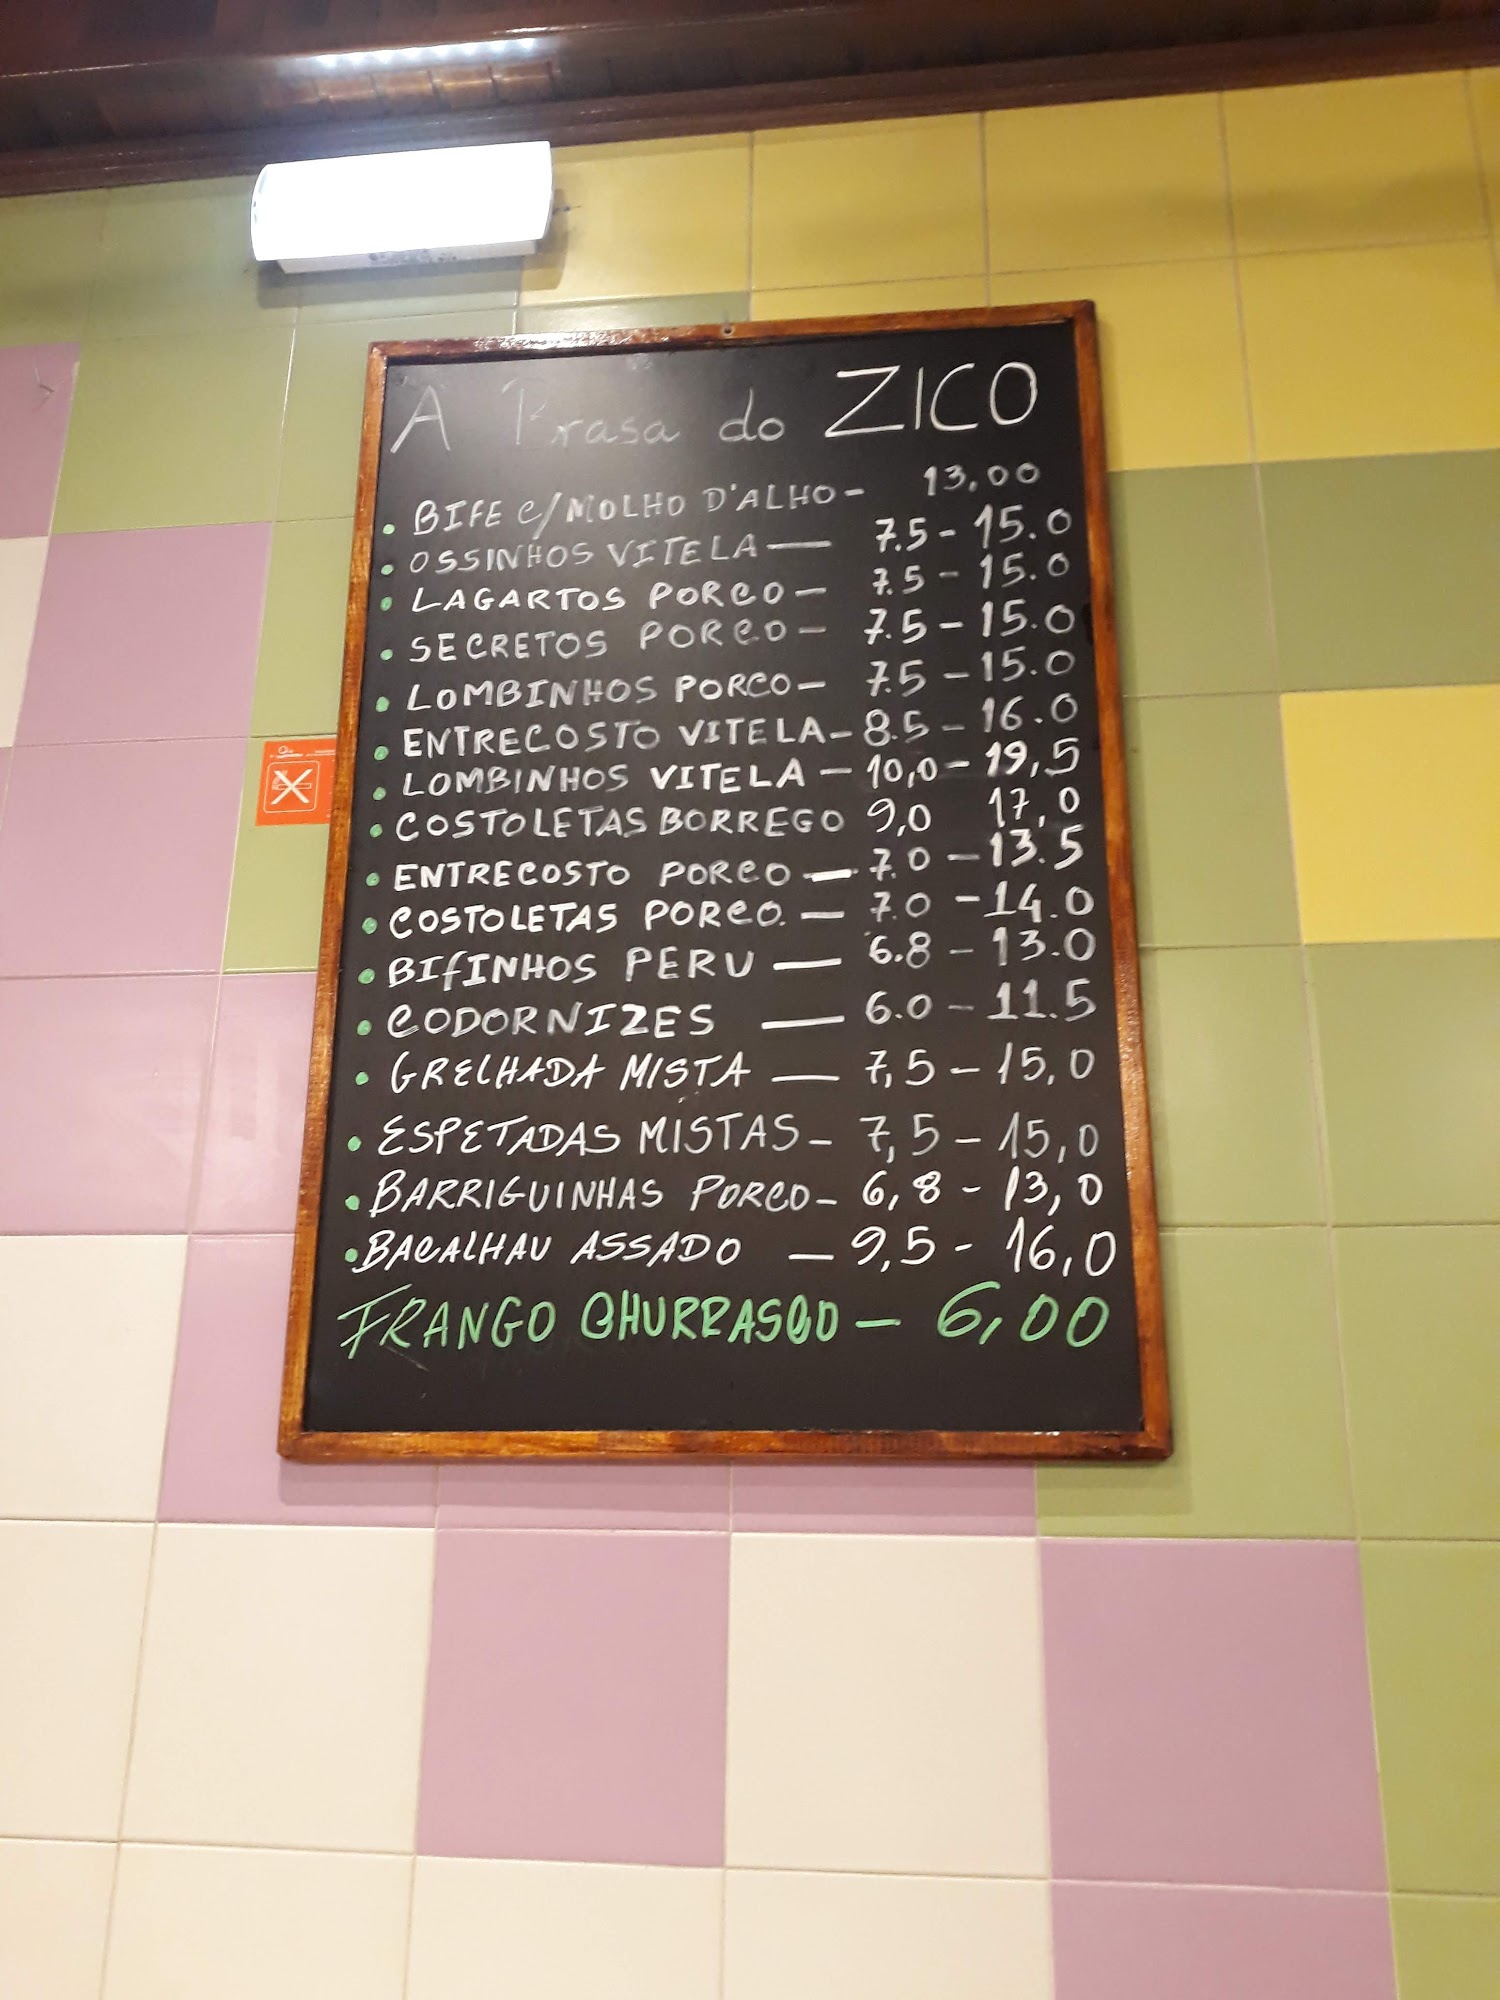 A Brasa do ZICO
• BIFE C/MOLHO D'ALHO - 13,00
• OSSINHOS VITELA — 7.5 - 15.0
• LAGARTOS PORCO - 7.5 - 15.0
• SECRETOS PORCO - 7.5 - 15.0
• LOMBINHOS PORCO - 7.5 - 15.0
• ENTRECOSTO VITELA - 8.5 - 16.0
• LOMBINHOS VITELA - 10,0 - 19,5
• COSTOLETAS BORREGO 9,0 17,0
• ENTRECOSTO PORCO — 7.0 - 13.5
• COSTOLETAS PORCO. — 7.0 - 14.0
• BIFINHOS PERU — 6.8 - 13.0
• CODORNIZES — 6.0 - 11.5
• GRELHADA MISTA — 7,5 - 15,0
• ESPETADAS MISTAS - 7,5 - 15,0
• BARRIGUINHAS PORCO - 6,8 - 13,0
• BACALHAU ASSADO — 9,5 - 16,0
FRANGO CHURRASCO — 6,00